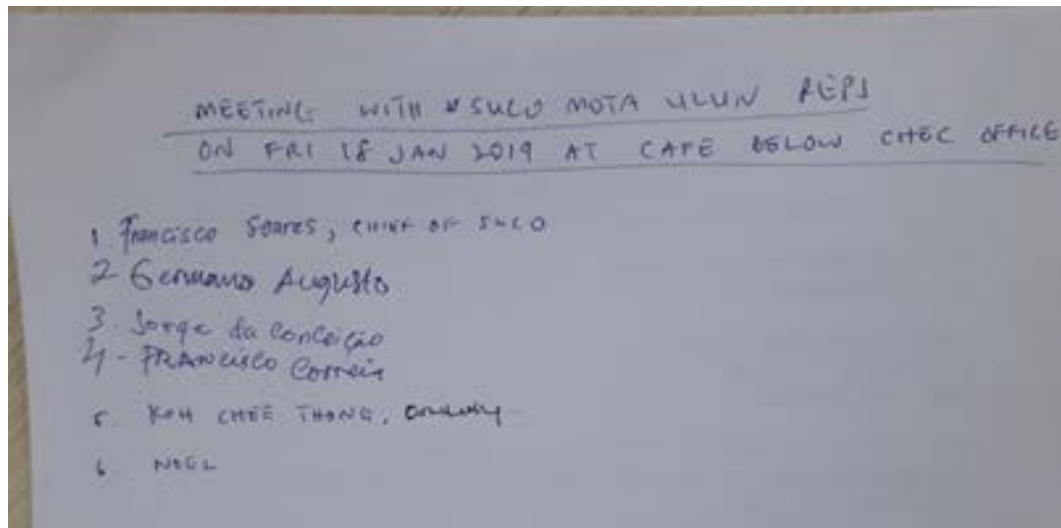 MEETING WITH SUCO MOTA ULUN REPS
ON FRI 18 JAN 2019 AT CAFE BELOW CHEC OFFICE
1 Francisco Soares, CHIEF OF SUCO
2 Germano Augusto
3. Jorge da Conceição
4 - FRANCISCO Correia
5. KOH CHEE THONG,
6 NOEL